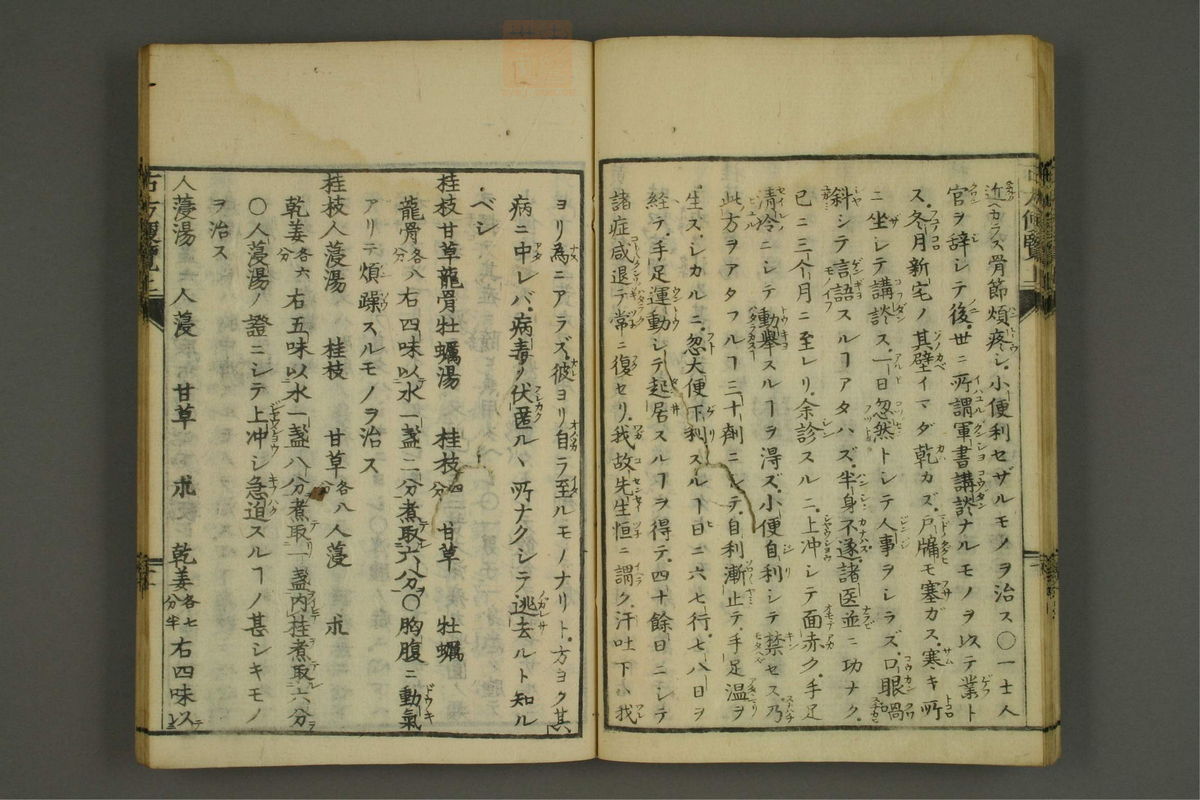 近カラス骨節煩疼シ小便利セザルモノヲ治ス〇一士人
官ヲ辞シテ後、世ニ所謂軍書講談ナルモノヲ以テ業ト
ス、冬月新宅ノ其壁イマダ乾カズ、戸牖モ塞ガス、寒キ所
ニ坐シテ講談ス、一日忽然トシテ人事ヲシラズ、口眼喎
斜シテ言語スルヿアタハズ、半身不遂、諸医並ニ功ナク、
已ニ三个月ニ至レリ、余診スルニ、上冲シテ面赤ク、手足
清冷ニシテ動擧スルヿヲ得ズ、小便自利シテ禁セス、乃
此方ヲアタフルヿ三十劑ニシテ、自利漸止テ、手足温ヲ
生ス、シカルニ、忽大便下利スルヿ日ニ六七行、七八日ヲ
経テ、手足運動シテ起居スルヿヲ得テ、四十餘日ニシテ
諸症咸退テ常ニ復セリ、我故先生恒ニ謂ク、汗吐下ハ我
ヨリ爲ニアラズ、彼ヨリ自ラ至ルモノナリト、方ヨク其
病ニ中レバ、病毒ノ伏匿ルヽ所ナクシテ逃去ルト知ル
ベシ
桂枝甘草龍骨牡蠣湯　桂枝四分　甘草　牡蠣
龍骨各八分　右四味以水一盞二分煮取六分〇胸腹ニ動氣
アリテ煩躁スルモノヲ治ス
桂枝人葠湯　桂枝　甘草各八分　人葠　朮
乾姜各六分　右五味以水一盞八分煮取一盞内桂煮取六分
〇人葠湯ノ證ニシテ上冲シ急迫スルヿノ甚シキモノ
ヲ治ス
人葠湯　人葠　甘草　朮　乾姜各七分半　右四味
古方便覽上